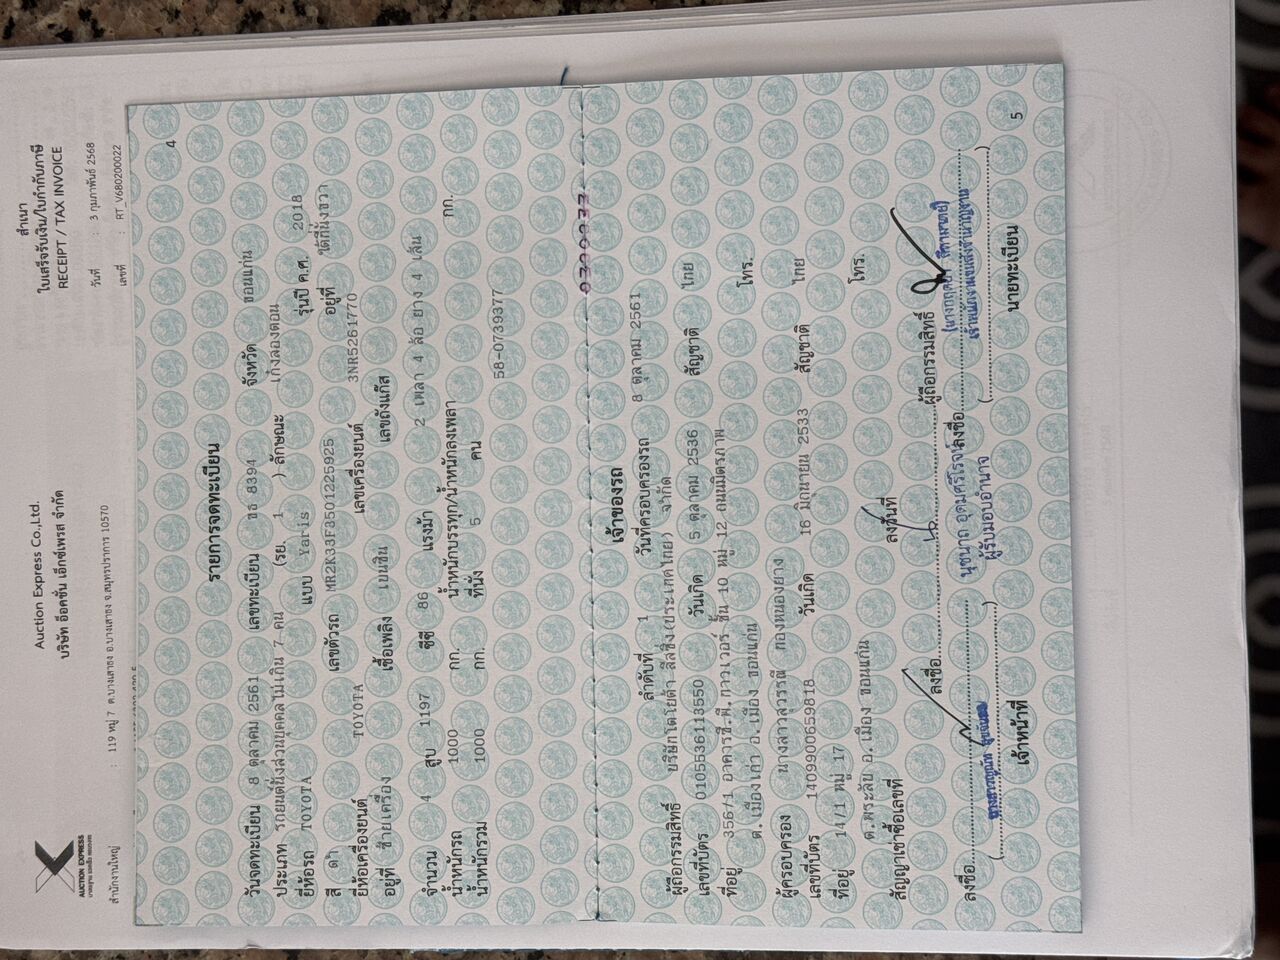 AUCTION EXPRESS
Auction Express Co.,Ltd.
บริษัท อ๊อคชั่น เอ็กซ์เพรส จำกัด
สำเนา
ใบเสร็จรับเงิน/ใบกำกับภาษี
RECEIPT / TAX INVOICE
สำนักงานใหญ่ : 119 หมู่ 7 ต.บางเสาธง อ.บางเสาธง จ.สมุทรปราการ 10570
วันที่ : 3 กุมภาพันธ์ 2568
เลขที่ : RT_V680200022
4
รายการจดทะเบียน
วันจดทะเบียน 8 ตุลาคม 2561 เลขทะเบียน ขธ 8394 จังหวัด ขอนแก่น
ประเภท รถยนต์นั่งส่วนบุคคลไม่เกิน 7 คน (รย. 1 ) ลักษณะ เก๋งสองตอน
ยี่ห้อรถ TOYOTA แบบ Yaris รุ่นปี ค.ศ. 2018
สี ดำ เลขตัวรถ MR2K33F3501225925 อยู่ที่ ใต้ที่นั่งขวา
ยี่ห้อเครื่องยนต์ TOYOTA เลขเครื่องยนต์ 3NR5261770
อยู่ที่ ซ้ายเครื่อง เชื้อเพลิง เบนซิน เลขถังแก๊ส
จำนวน 4 สูบ 1197 ซีซี 86 แรงม้า 2 เพลา 4 ล้อ ยาง 4 เส้น
น้ำหนักรถ 1000 กก. น้ำหนักบรรทุก/น้ำหนักลงเพลา กก.
น้ำหนักรวม 1000 กก. ที่นั่ง 5 คน 58-0739377
เจ้าของรถ
ลำดับที่ 1 วันที่ครอบครองรถ 8 ตุลาคม 2561
ผู้ถือกรรมสิทธิ์ บริษัทโตโยต้า ลีสซิ่ง(ประเทศไทย) จำกัด
เลขที่บัตร 0105536113550 วันเกิด 5 ตุลาคม 2536 สัญชาติ ไทย
ที่อยู่ 356/1 อาคารซี.พี.ทาวเวอร์ ชั้น 10 หมู่ 12 ถนนมิตรภาพ
ต.เมืองเก่า อ.เมือง ขอนแก่น โทร.
ผู้ครอบครอง นางสาวสุวรรณี กองหนองยาง
เลขที่บัตร 1409900659818 วันเกิด 16 มิถุนายน 2533 สัญชาติ ไทย
ที่อยู่ 14/1 หมู่ 17
ต.พระลับ อ.เมือง ขอนแก่น โทร.
สัญญาเช่าซื้อเลขที่ ลงวันที่
ลงชื่อ ผู้ถือกรรมสิทธิ์
ลงชื่อ ลงชื่อ
ผู้รับมอบอำนาจ
เจ้าหน้าที่ นายทะเบียน
5